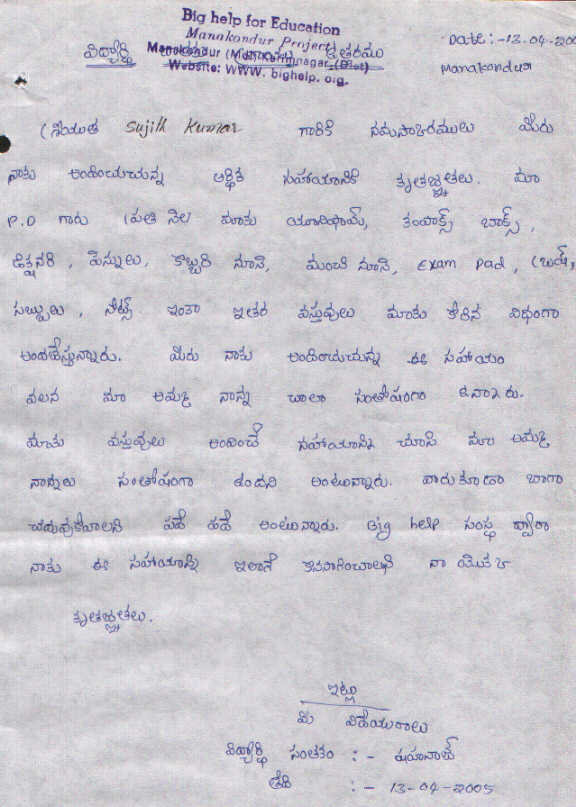 Big help for Education
Manakondur Project
విద్యార్థి ఉత్తరము
Manakondur (M) Karimnagar (Dist)
Website: WWW. bighelp. org.
Date:-13.04-200
Manakondur
శ్రీయుత Sujith Kumar గారికి నమస్కారములు మీరు
నాకు అందించుచున్న ఆర్థిక సహాయానికి కృతజ్ఞతలు. మా
P.D గారు ప్రతి నెల మాకు యూనిఫామ్, కంపాక్స్ బాక్స్,
డిక్షనరి, పెన్నులు, కొబ్బరి నూనె, మంచి నూనె, Exam Pad, బ్రష్,
సబ్బులు, నోట్స్ ఇంకా ఇతర వస్తువులు మాకు కోరిన విధంగా
అందజేస్తున్నారు. మీరు నాకు అందించుచున్న ఈ సహాయం
వలన మా అమ్మ నాన్న చాలా సంతోషంగా ఉన్నారు.
మాకు వస్తువులు అందించే సహాయాన్ని చూసి మా అమ్మ
నాన్నలు సంతోషంగా ఉందని అంటున్నారు. వారుకూడా బాగా
చదువుకోవాలని పదే పదే అంటున్నారు. Big help సంస్థ ద్వారా
నాకు ఈ సహాయాన్ని ఇలానే కొనసాగించాలని నా యొక్క
కృతజ్ఞతలు.
ఇట్లు
మీ విధేయురాలు
విద్యార్థి సంతకం :- షహనాజ్
తేది :- 13-04-2005